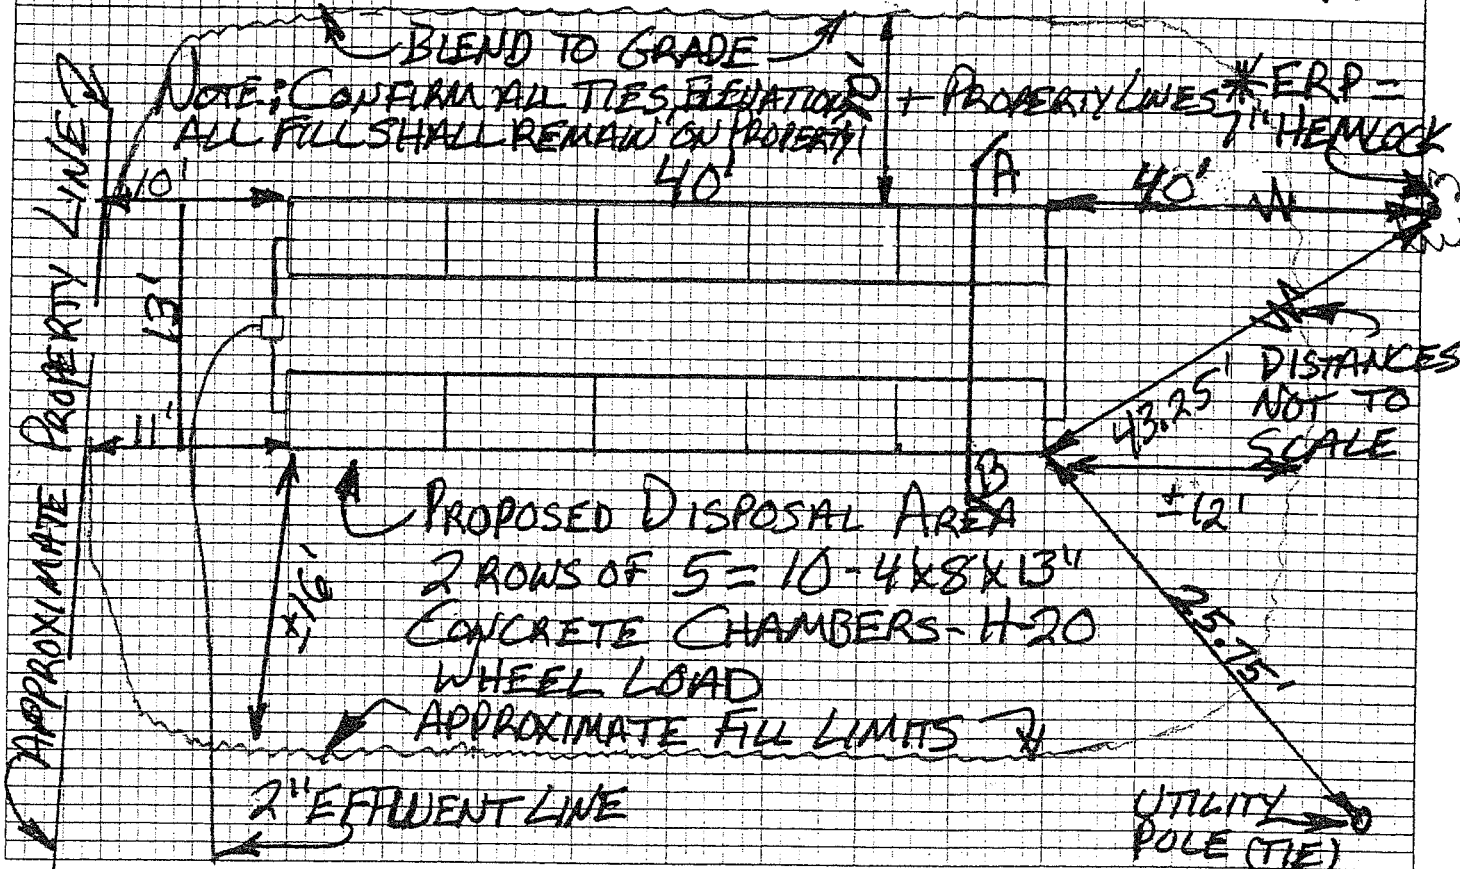 BLEND TO GRADE
NOTE: CONFIRM ALL TIES, ELEVATIONS + PROPERTY LINES
ALL FILL SHALL REMAIN ON PROPERTY!
* ERP =
7" HEMLOCK
APPROXIMATE PROPERTY LINE
10'
40'
A
40'
13'
11'
43.25'
DISTANCES
NOT TO
SCALE
B
±12'
PROPOSED DISPOSAL AREA
2 ROWS OF 5 = 10 - 4'X8'X13"
CONCRETE CHAMBERS - H-20
WHEEL LOAD
16'
25.75'
APPROXIMATE FILL LIMITS
2" EFFLUENT LINE
UTILITY
POLE (TIE)